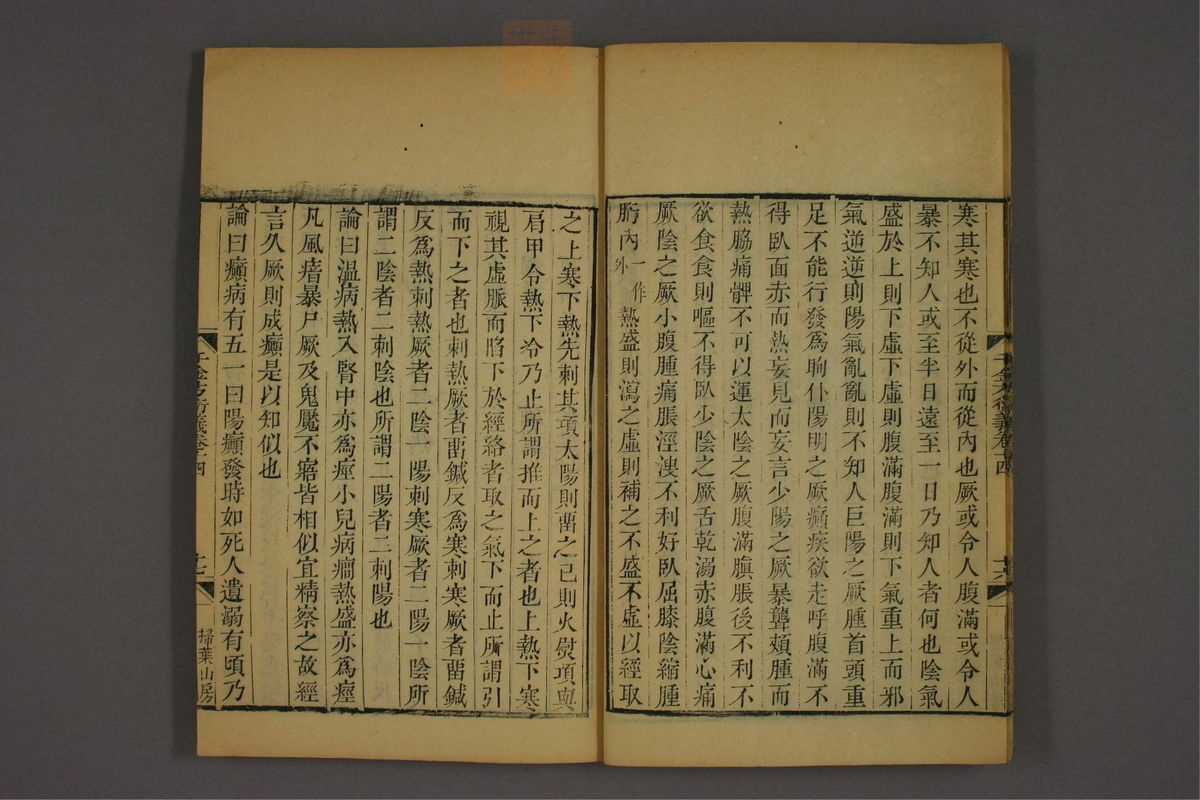 寒其寒也不從外而從內也厥或令人腹滿或令人
暴不知人或至半日遠至一日乃知人者何也陰氣
盛於上則下虛下虛則腹滿腹滿則下氣重上而邪
氣逆逆則陽氣亂亂則不知人巨陽之厥腫首頭重
足不能行發爲眴仆陽明之厥癲疾欲走呼腹滿不
得臥面赤而熱妄見而妄言少陽之厥暴聾頰腫而
熱脇痛髀不可以運太陰之厥腹滿䐜脹後不利不
欲食食則嘔不得臥少陰之厥舌乾溺赤腹滿心痛
厥陰之厥小腹腫痛脹涇溲不利好臥屈膝陰縮腫
胻內一作外熱盛則瀉之虛則補之不盛不虛以經取
千金方衍義卷十四
十六
之上寒下熱先刺其項太陽則畱之已則火熨項與
肩甲令熱下冷乃止所謂推而上之者也上熱下寒
視其虛脈而陷下於經絡者取之氣下而止所謂引
而下之者也刺熱厥者畱鍼反爲寒刺寒厥者畱鍼
反爲熱刺熱厥者二陰一陽刺寒厥者二陽一陰所
謂二陰者二刺陰也所謂二陽者二刺陽也
論曰溫病熱入腎中亦爲痙小兒病癇熱盛亦爲痙
凡風瘖暴尸厥及鬼魘不寤皆相似宜精察之故經
言久厥則成癲是以知似也
論曰癲病有五一曰陽癲發時如死人遺溺有頃乃
千金方衍義卷十四
十七
掃葉山房